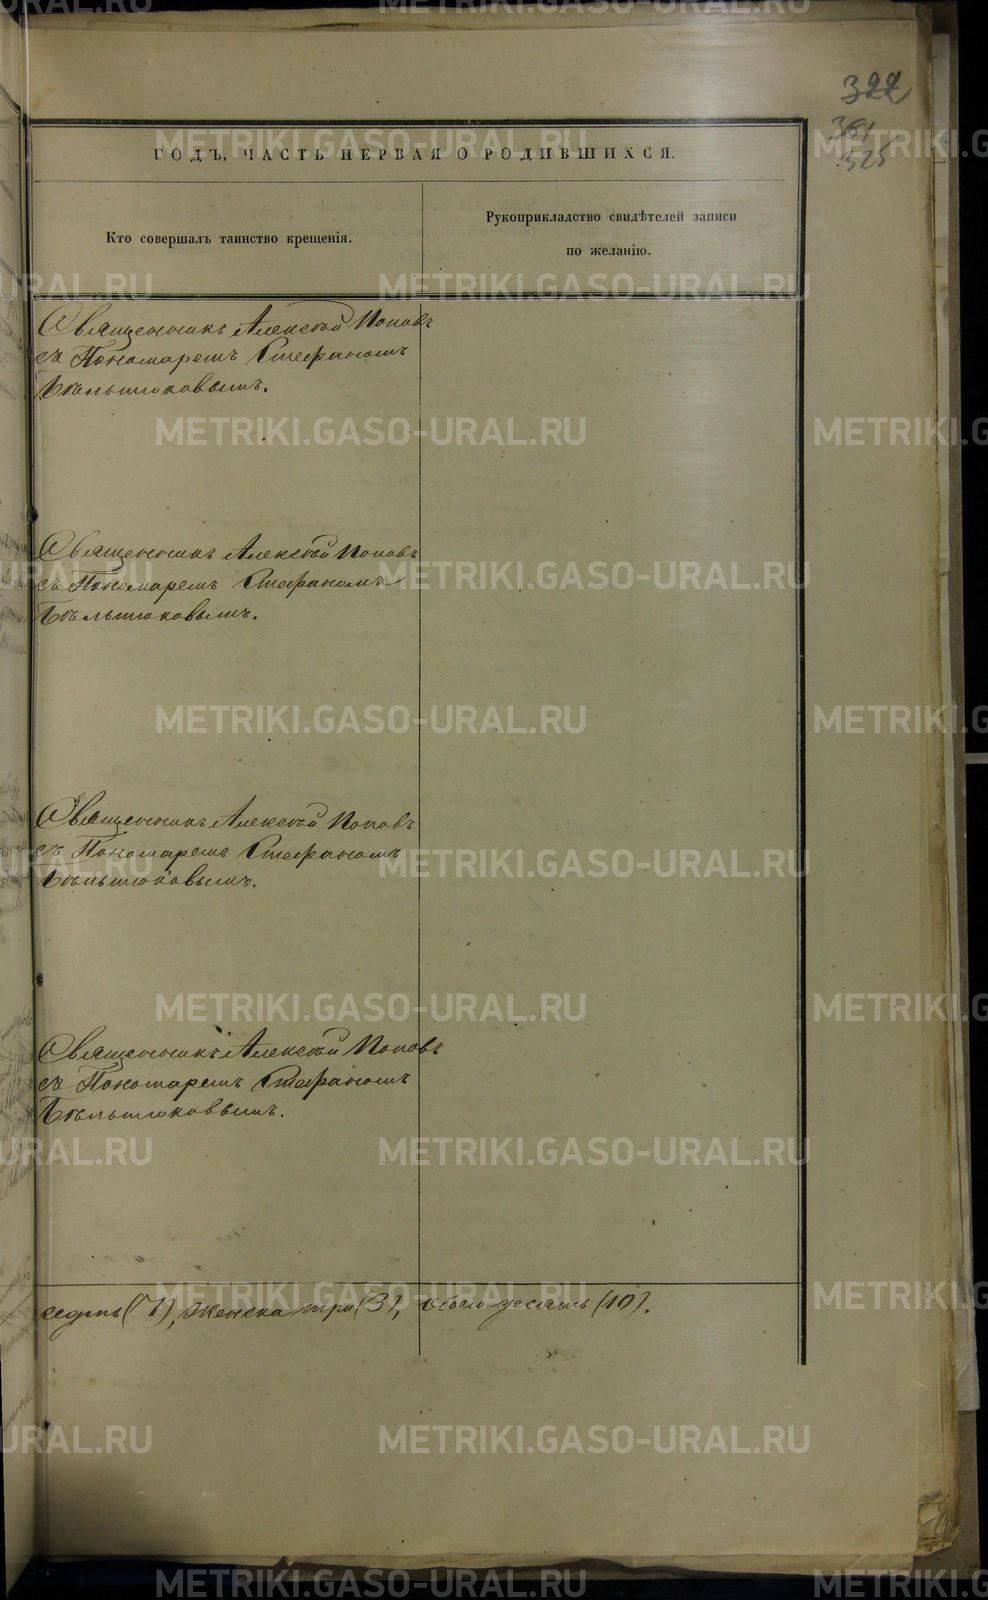 322
325
ГОДЪ, ЧАСТЬ ПЕРВАЯ О РОДИВШИХСЯ.
Кто совершалъ таинство крещенія.
Рукоприкладство свидѣтелей записи
по желанію.
Священникъ Алексѣй Поповъ
съ Пономаремъ Стефаномъ
Бѣльтюковымъ.
Священникъ Алексѣй Поповъ
съ Пономаремъ Стефаномъ
Бѣльтюковымъ.
Священникъ Алексѣй Поповъ
съ Пономаремъ Стефаномъ
Бѣльтюковымъ.
Священникъ Алексѣй Поповъ
съ Пономаремъ Стефаномъ
Бѣльтюковымъ.
седмь (7), женска три (3), обоего десять (10).
METRIKI.GASO-URAL.RU